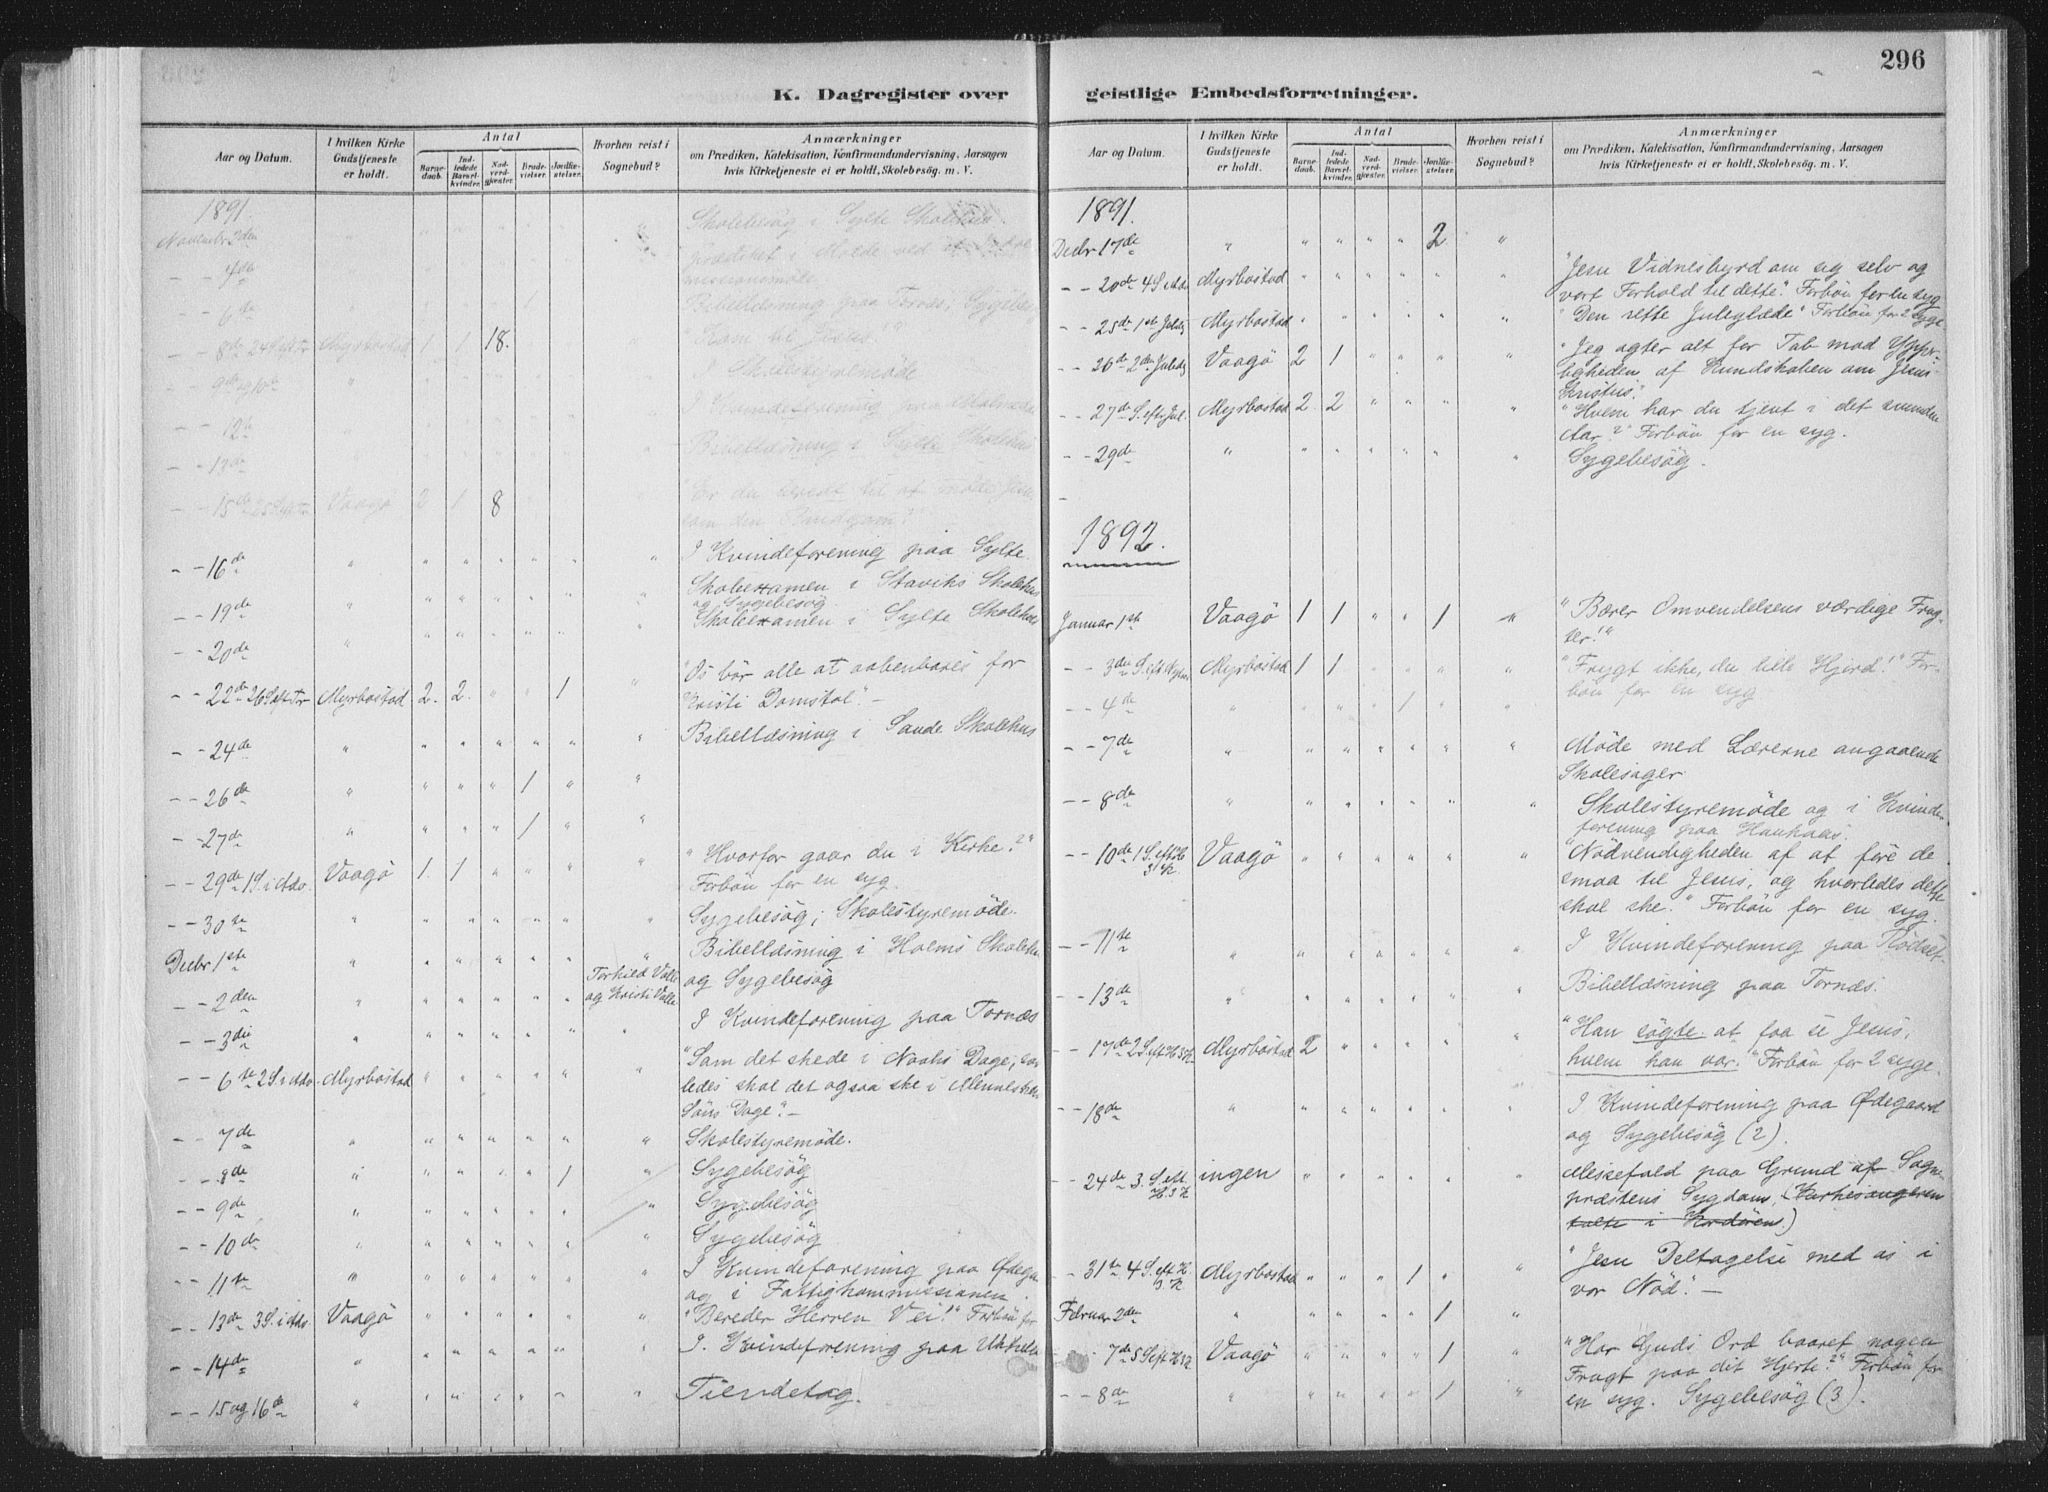 296
K. Dagregister over geistlige Embedsforretninger.
Aar og Datum.
I hvilken Kirke Gudstjeneste er holdt.
Antal
Barnedaab.
Indledede Barselkvinder.
Nadverdgjester.
Brudevielser.
Jordfæstelser.
Hvorhen reist i Sognebud?
Anmærkninger
om Prædiken, Katekisation, Konfirmandundervisning, Aarsagen
hvis Kirketjeneste ei er holdt, Skolebesög. m. V.
1891.
Novembr 2den " " " " " " " Skolebesög i Sylte Skolehus
- - 4de prædiket i Molde ved
missionsmöde
- - 6te Bibellæsning paa Tornæs, Sygebes.
- - 8de 24 S.eft.Tr Myrbostad 1 1 18. Kom til Jesus!"
- - 9de og 10de " I Skolestyremöde
- - 12te I Kvindeforening paa
- - 13de Bibellæsning i Sylte Skolehus
- - 15de 25 S.eft.Tr Vaagö 2 1 8 "Er du beredt til at möde Jesu
som din Brudgom?"
- - 16de " " " " " " " I Kvindeforening paa Sylte.
Skolexamen i Staviks Skolehus
- - 19de " " " " " " " og Sygebesög.
Skolexamen i Sylte Skolehus
- - 20de " " " " " "
"Os bör alle at aabenbares for
- - 22de 26 S.eft.Tr Myrbostad 2. 2. " " 1 " Kristi Domstol". -
- - 24de " " " " " " " Bibellæsning i Sande Skolehus
- - 26de " " " " 1 " "
- - 27de " " " " 1 " "
"Hvorfor gaar du i Kirke?"
- - 29de 1 S. i Adv. Vaagö 1. 1 " " " " Forbön for en syg.
- - 30te " " " " " " " Sygebesög; Skolestyremöde.
Decbr 1ste " " " " " " " Bibellæsning i Holms Skolehus
- - 2den " " " " " " Torhild Valle og Kristi Valle og Sygebesög
- - 3die " " " " " " " I Kvindeforening paa Tornæs
"Som det skede i Noahs Dage, saa
- - 6te 2 S. i Adv. Myrbostad " " " " " ledes skal det ogsaa ske i Menneskens
Söns Dage". -
- - 7de " " " " " " " Skolestyremöde.
- - 8de " " " " " 1 " Sygebesög
- - 9de " " " " " " " Sygebesög
- - 10de " " " " " " " Sygebesög
- - 11te " " " " " " " I Kvindeforening paa Ødega
og i Fattigkommissionen.
- - 13de 3 S. i Adv. Vaagö " " " " " " "Bereder Herren Vei!" Forbön for
- - 14de " " " " " " " I Kvindeforening paa
- - 15 og 16de " " " " " " " Tiendetog.
Aar og Datum.
I hvilken Kirke Gudstjeneste er holdt.
Antal
Barnedaab.
Indledede Barselkvinder.
Nadverdgjester.
Brudevielser.
Jordfæstelser.
Hvorhen reist i Sognebud?
Anmærkninger
om Prædiken, Katekisation, Konfirmandundervisning, Aarsagen
hvis Kirketjeneste ei er holdt, Skolebesög. m. V.
1891.
Decbr 17de " " " " " 2 "
- - 20de 4 S. i Adv Myrbostad " " " " " " "Jesu Vidnesbyrd om sig selv og
vort Forhold til dette". Forbön for en syg.
- - 25de 1ste Juledg Myrbostad " " " " " " "Den rette Juleglæde" Forbön for 2 syge
- - 26de 2den Juledg Vaagö 2 1 " " " " "Jeg agter alt for Tab mod Yppr-
ligheden af Kundskaben om Jesus
Kristus".
- - 27de S. eft. Jul. Myrbostad 2. 2 " " " " "Hvem har du tjent i det svundne
Aar?" Forbön for en syg.
- - 29de " " " " " " " Sygebesög.
1892.
Januar 1ste Vaagö 1 1 " " 1 " "Bærer Omvendelsens værdige Frug-
ter!"
- - 3die S. eft. Nytaar Myrbostad 1 1 " " " " "Frygt ikke, du lille Hjord!" For-
bön for en syg
- - 4de " " " " 1 " "
- - 7de " " " " " " " Möde med Lærerne angaaende
Skolesager
- - 8de " " " " " " " Skolestyremöde og i Kvinde-
forening paa Haukaas.
- - 10de 1 S. eft. H 3 K Vaagö " " " " " " "Nödvendigheden af at före de
smaa til Jesus, og hvorledes dette
skal ske." Forbön for en syg.
- - 11te " " " " " " " I Kvindeforening paa Rödset
- - 13de " " " " " " " Bibellæsning paa Tornæs.
"Han sögte at faa se Jesus,
- - 17de 2 S. eft H 3 K Myrbostad 2 " " " " " hvem han var." Forbön for 2 syge.
- - 18de " " " " " " " I Kvindeforening paa Ødegaard
og Sygebesög (2).
- - 24de 3. S. eft. H. 3 K ingen " " " " " " Messefald paa Grund af Sogne-
præstens Sygdom, (Kirkesangeren
talte i Kordören)
- - 31te 4 S. eft H. 3. K Myrbostad " " " 1 " " "Jesu Deltagelse med os i
vor Nöd". -
Februar 2den " " " " " 1 "
- - 7de 5 S eft H 3 K Vaagö " " " " 1 " "Har Guds Ord baaret nogen
Frugt paa dit Hjerte?" Forbön for
- - 8de " " " " " 1 " en syg. Sygebesög (3).